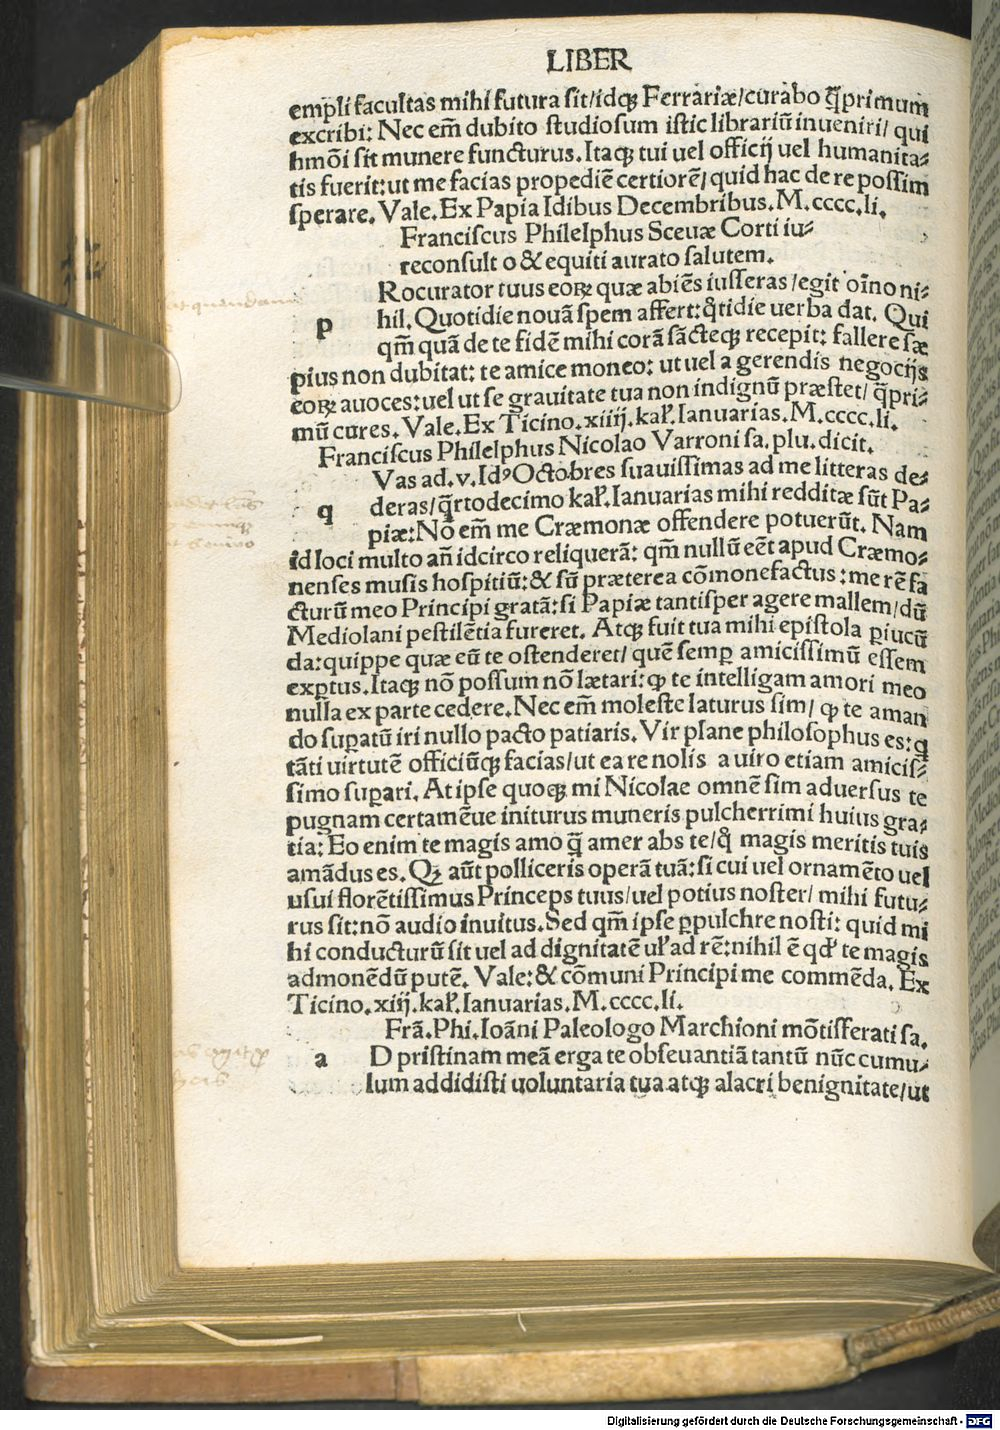 LIBER
empli facultas mihi futura sit/idqꝫ Ferrariæ/curabo q̃primum
excribi: Nec em̃ dubito studiosum istic librariũ inueniri/ qui
hmõi sit munere functurus. Itaqꝫ tui uel officij uel humanita-
tis fuerit: ut me facias propediẽ certiorẽ/ quid hac de re possim
sperare. Vale. Ex Papia Idibus Decembribus. M.cccc.li.
Franciscus Philelphus Sceuæ Corti iu-
reconsult o & equiti aurato salutem.
Rocurator tuus eoꝝ quæ abiẽs iusseras/egit oĩno ni-
p hil. Quotidie nouã spem affert: q̃tidie uerba dat. Qui
qm̃ quã de te fidẽ mihi corã sãcteqꝫ recepit: fallere sæ
pius non dubitat: te amice moneo: ut uel a gerendis negocijs
eoꝝ auoces: uel ut se grauitate tua non indignũ præstet/ q̃pri-
mũ cures. Vale. Ex Ticino. xiiij. kaꝉ. Ianuarias. M.cccc.li.
Franciscus Philelphus Nicolao Varroni sa. plu. dicit.
Vas ad. v. Idꝰ Octobres suauissimas ad me litteras de-
q deras/q̃rtodecimo kaꝉ. Ianuarias mihi redditæ sũt Pa-
piæ: Nõ em̃ me Cræmonæ offendere potuerũt. Nam
id loci multo añ idcirco reliquerã: qm̃ nullũ eẽt apud Cræmo-
nenses musis hospitiũ: & sũ præterea cõmonefactus: me rẽ fa
cturũ meo Principi gratã: si Papiæ tantisper agere mallem/dũ
Mediolani pestilẽtia fureret. Atqꝫ fuit tua mihi epistola ꝑiucũ
da: quippe quæ eũ te ostenderet/ quẽ semꝑ amicissimũ essem
exꝑtus. Itaqꝫ nõ possum nõ lætari: ꝙ te intelligam amori meo
nulla ex parte cedere. Nec em̃ moleste laturus sim/ ꝙ te aman
do suꝑatũ iri nullo pacto patiaris. Vir plane philosophus es: q̃
tãti uirtutẽ officiũqꝫ facias/ut ea re nolis a uiro etiam amicis-
simo suꝑari. At ipse quoqꝫ mi Nicolae omnẽ sim aduersus te
pugnam certamẽue initurus muneris pulcherrimi huius gra-
tia: Eo enim te magis amo q̃ amer abs te/q̃ magis meritis tuis
amãdus es. Qꝫ aũt polliceris operã tuã: si cui uel ornamẽto uel
usui florẽtissimus Princeps tuus/uel potius noster/ mihi futu-
rus sit: nõ audio inuitus. Sed qm̃ ipse ꝑpulchre nosti: quid mi
hi conducturũ sit uel ad dignitatẽ uꝉ ad rẽ: nihil ẽ qđ te magis
admonẽdũ putẽ. Vale: & cõmuni Principi me commẽda. Ex
Ticino. xiij. kaꝉ. Ianuarias. M.cccc.li.
Frã. Phi. Ioãni Paleologo Marchioni mõtisferati sa.
a D pristinam meã erga te obseuantiã tantũ nũc cumu-
lum addidisti uoluntaria tua atqꝫ alacri benignitate/ut
Digitalisierung gefördert durch die Deutsche Forschungsgemeinschaft - DFG